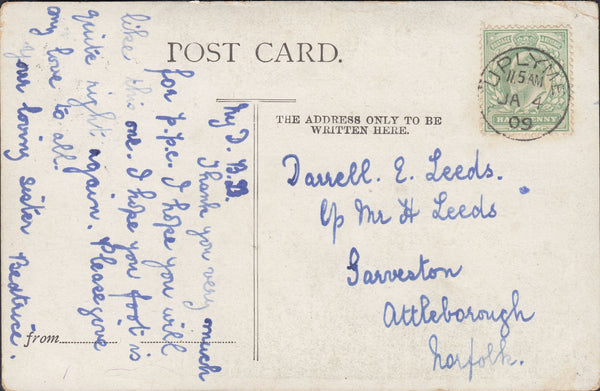 POST CARD.
THE ADDRESS ONLY TO BE
WRITTEN HERE.
UPLYME
11.5 AM
JA 4
09
HALFPENNY
My D. B.B.
Thank you very much
for p.p.c. I hope you will
like this one. I hope you foot is
quite right again. Please give
my love to all.
your loving sister Beatrice.
from
Darrell. E. Leeds.
C/o Mr H Leeds
Garveston
Attleborough
Norfolk.